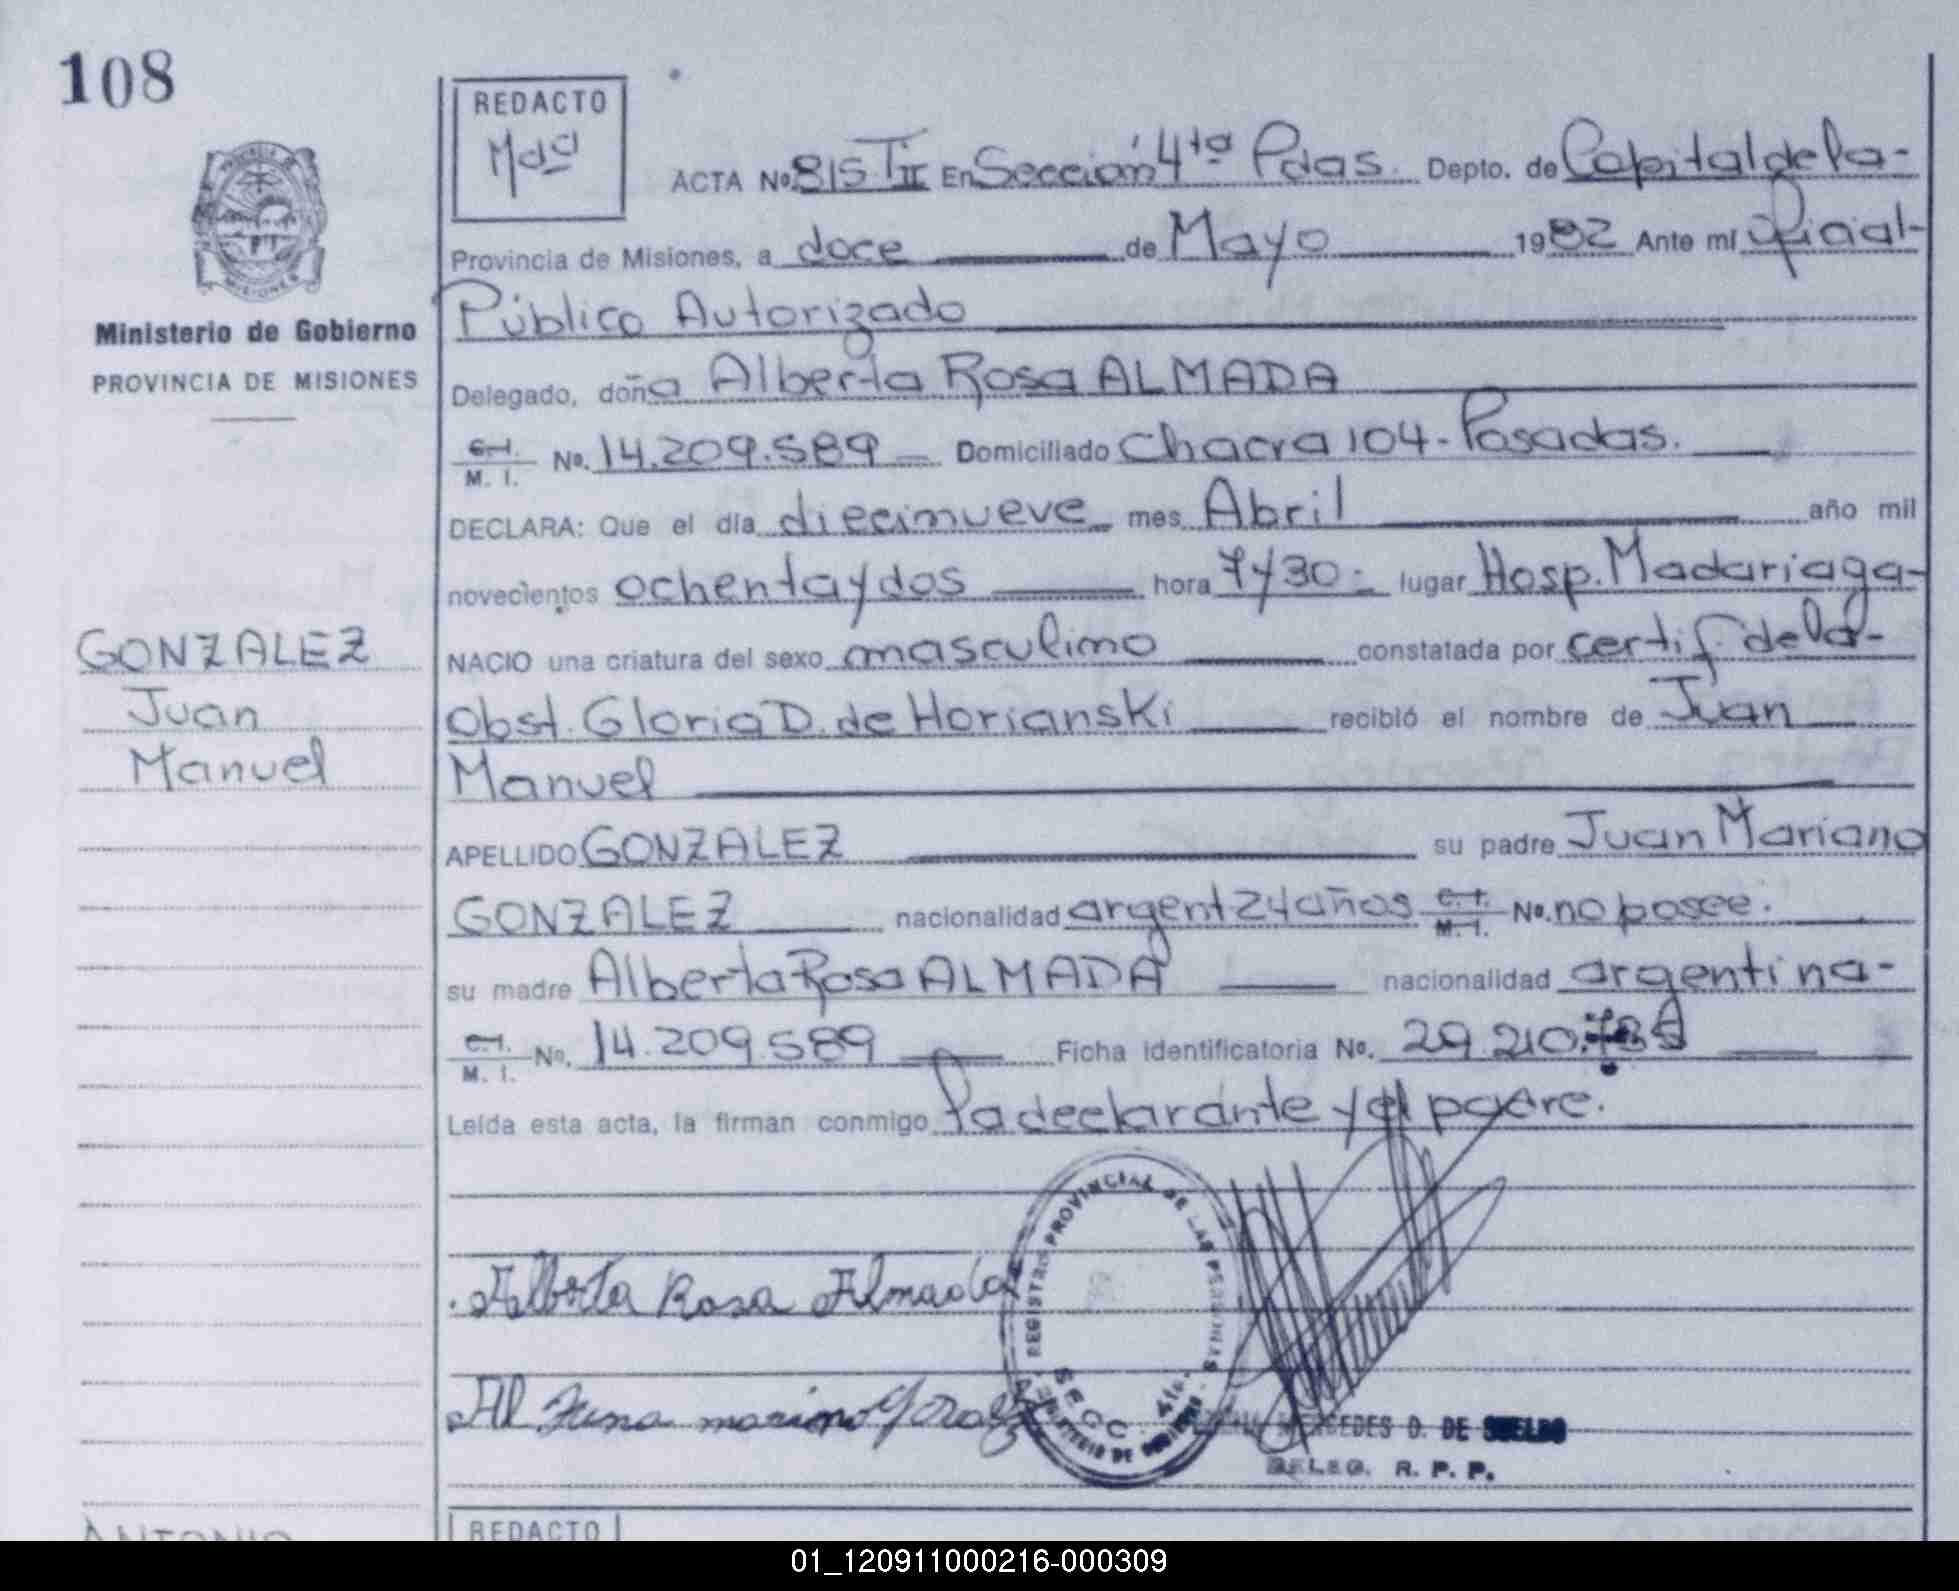 108
REDACTO
Mdd
ACTA Nº 815 TII En Sección 4ta Pdas. Depto. de Capital de la-
Provincia de Misiones, a doce de Mayo 1982 Ante mí Oficial-
Público Autorizado
Ministerio de Gobierno
PROVINCIA DE MISIONES
Delegado, doña Alberta Rosa ALMADA
C.I.
M. I. Nº. 14.209.589 Domiciliado Chacra 104 - Posadas.
DECLARA: Que el día diecinueve mes Abril año mil
novecientos ochenta y dos hora 7 y 30 - lugar Hosp. Madariaga-
GONZALEZ
Juan
Manuel
NACIO una criatura del sexo masculino constatada por certif. de la-
Obst. Gloria D. de Horianski recibió el nombre de Juan
Manuel
APELLIDO GONZALEZ su padre Juan Mariano
GONZALEZ nacionalidad argent 24 años C.I. M. I. Nº. no posee.
su madre Alberta Rosa ALMADA nacionalidad argentina-
C.I.
M. I. Nº. 14.209.589 Ficha identificatoria Nº. 29.210.
Leída esta acta, la firman conmigo la declarante y el padre.
REGISTRO PROVINCIAL DE LAS PERSONAS
SECC. 4ta.
MINISTERIO DE GOBIERNO
Alberta Rosa Almada
MERCEDES D. DE
DELEG. R. P. P.
ANTONIO
REDACTO
01_120911000216-000309